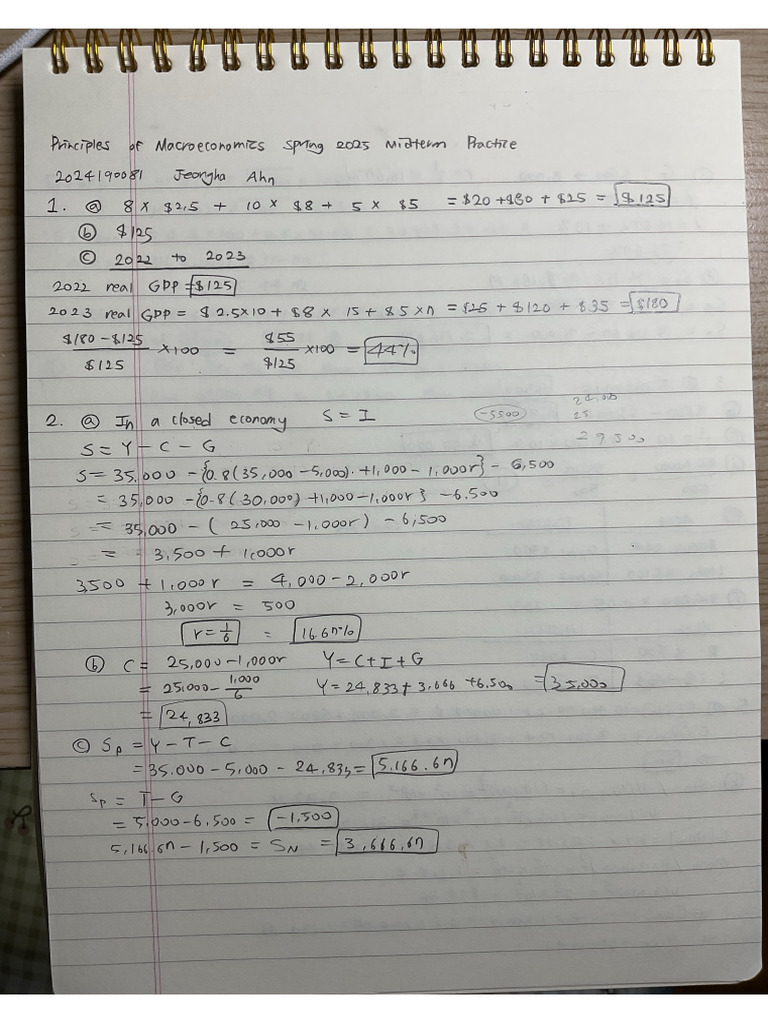 Principles of Macroeconomics Spring 2025 Midterm Practice
2024190081 Jeongha Ahn
1. ⓐ 8 × $2.5 + 10 × $8 + 5 × $5 = $20 + $80 + $25 = $125
ⓑ $125
ⓒ 2022 to 2023
2022 real GDP = $125
2023 real GDP = $2.5×10 + $8 × 15 + $5 × 7 = $25 + $120 + $35 = $180
($180 - $125)/$125 × 100 = $55/$125 × 100 = 44%
2. ⓐ In a closed economy S = I
-5500
25
29500
S = Y - C - G
S = 35,000 - {0.8(35,000 - 5,000) + 1,000 - 1,000r} - 6,500
= 35,000 - {0.8(30,000) + 1,000 - 1,000r} - 6.500
= 35,000 - (25,000 - 1,000r) - 6,500
= 3,500 + 1,000r
3,500 + 1,000r = 4,000 - 2,000r
3,000r = 500
r = 1/6 = 16.67%
ⓑ C = 25,000 - 1,000r Y = C + I + G
= 25,000 - 1,000/6 Y = 24,833 + 3,666 + 6,500 = 35,000
= 24,833
ⓒ Sp = Y - T - C
= 35,000 - 5,000 - 24,833 = 5,166.67
Sp = T - G
= 5,000 - 6,500 = -1,500
5,166.67 - 1,500 = SN = 3,666.67